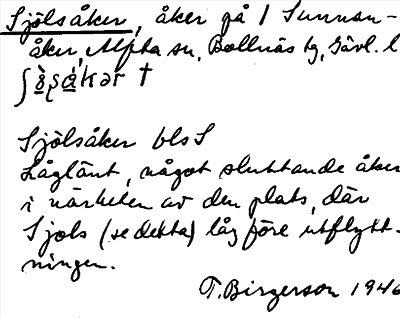 Sjölsåker, åker på 1 Sunnan-
åker, Alfta sn, Bollnäs tg, Gävl. l
†
Sjölsåker bls S
Låglänt, något sluttande åker
i närheten av den plats, där
Sjols (se detta) låg före utflytt-
ningen.
T. Birgerson 1946